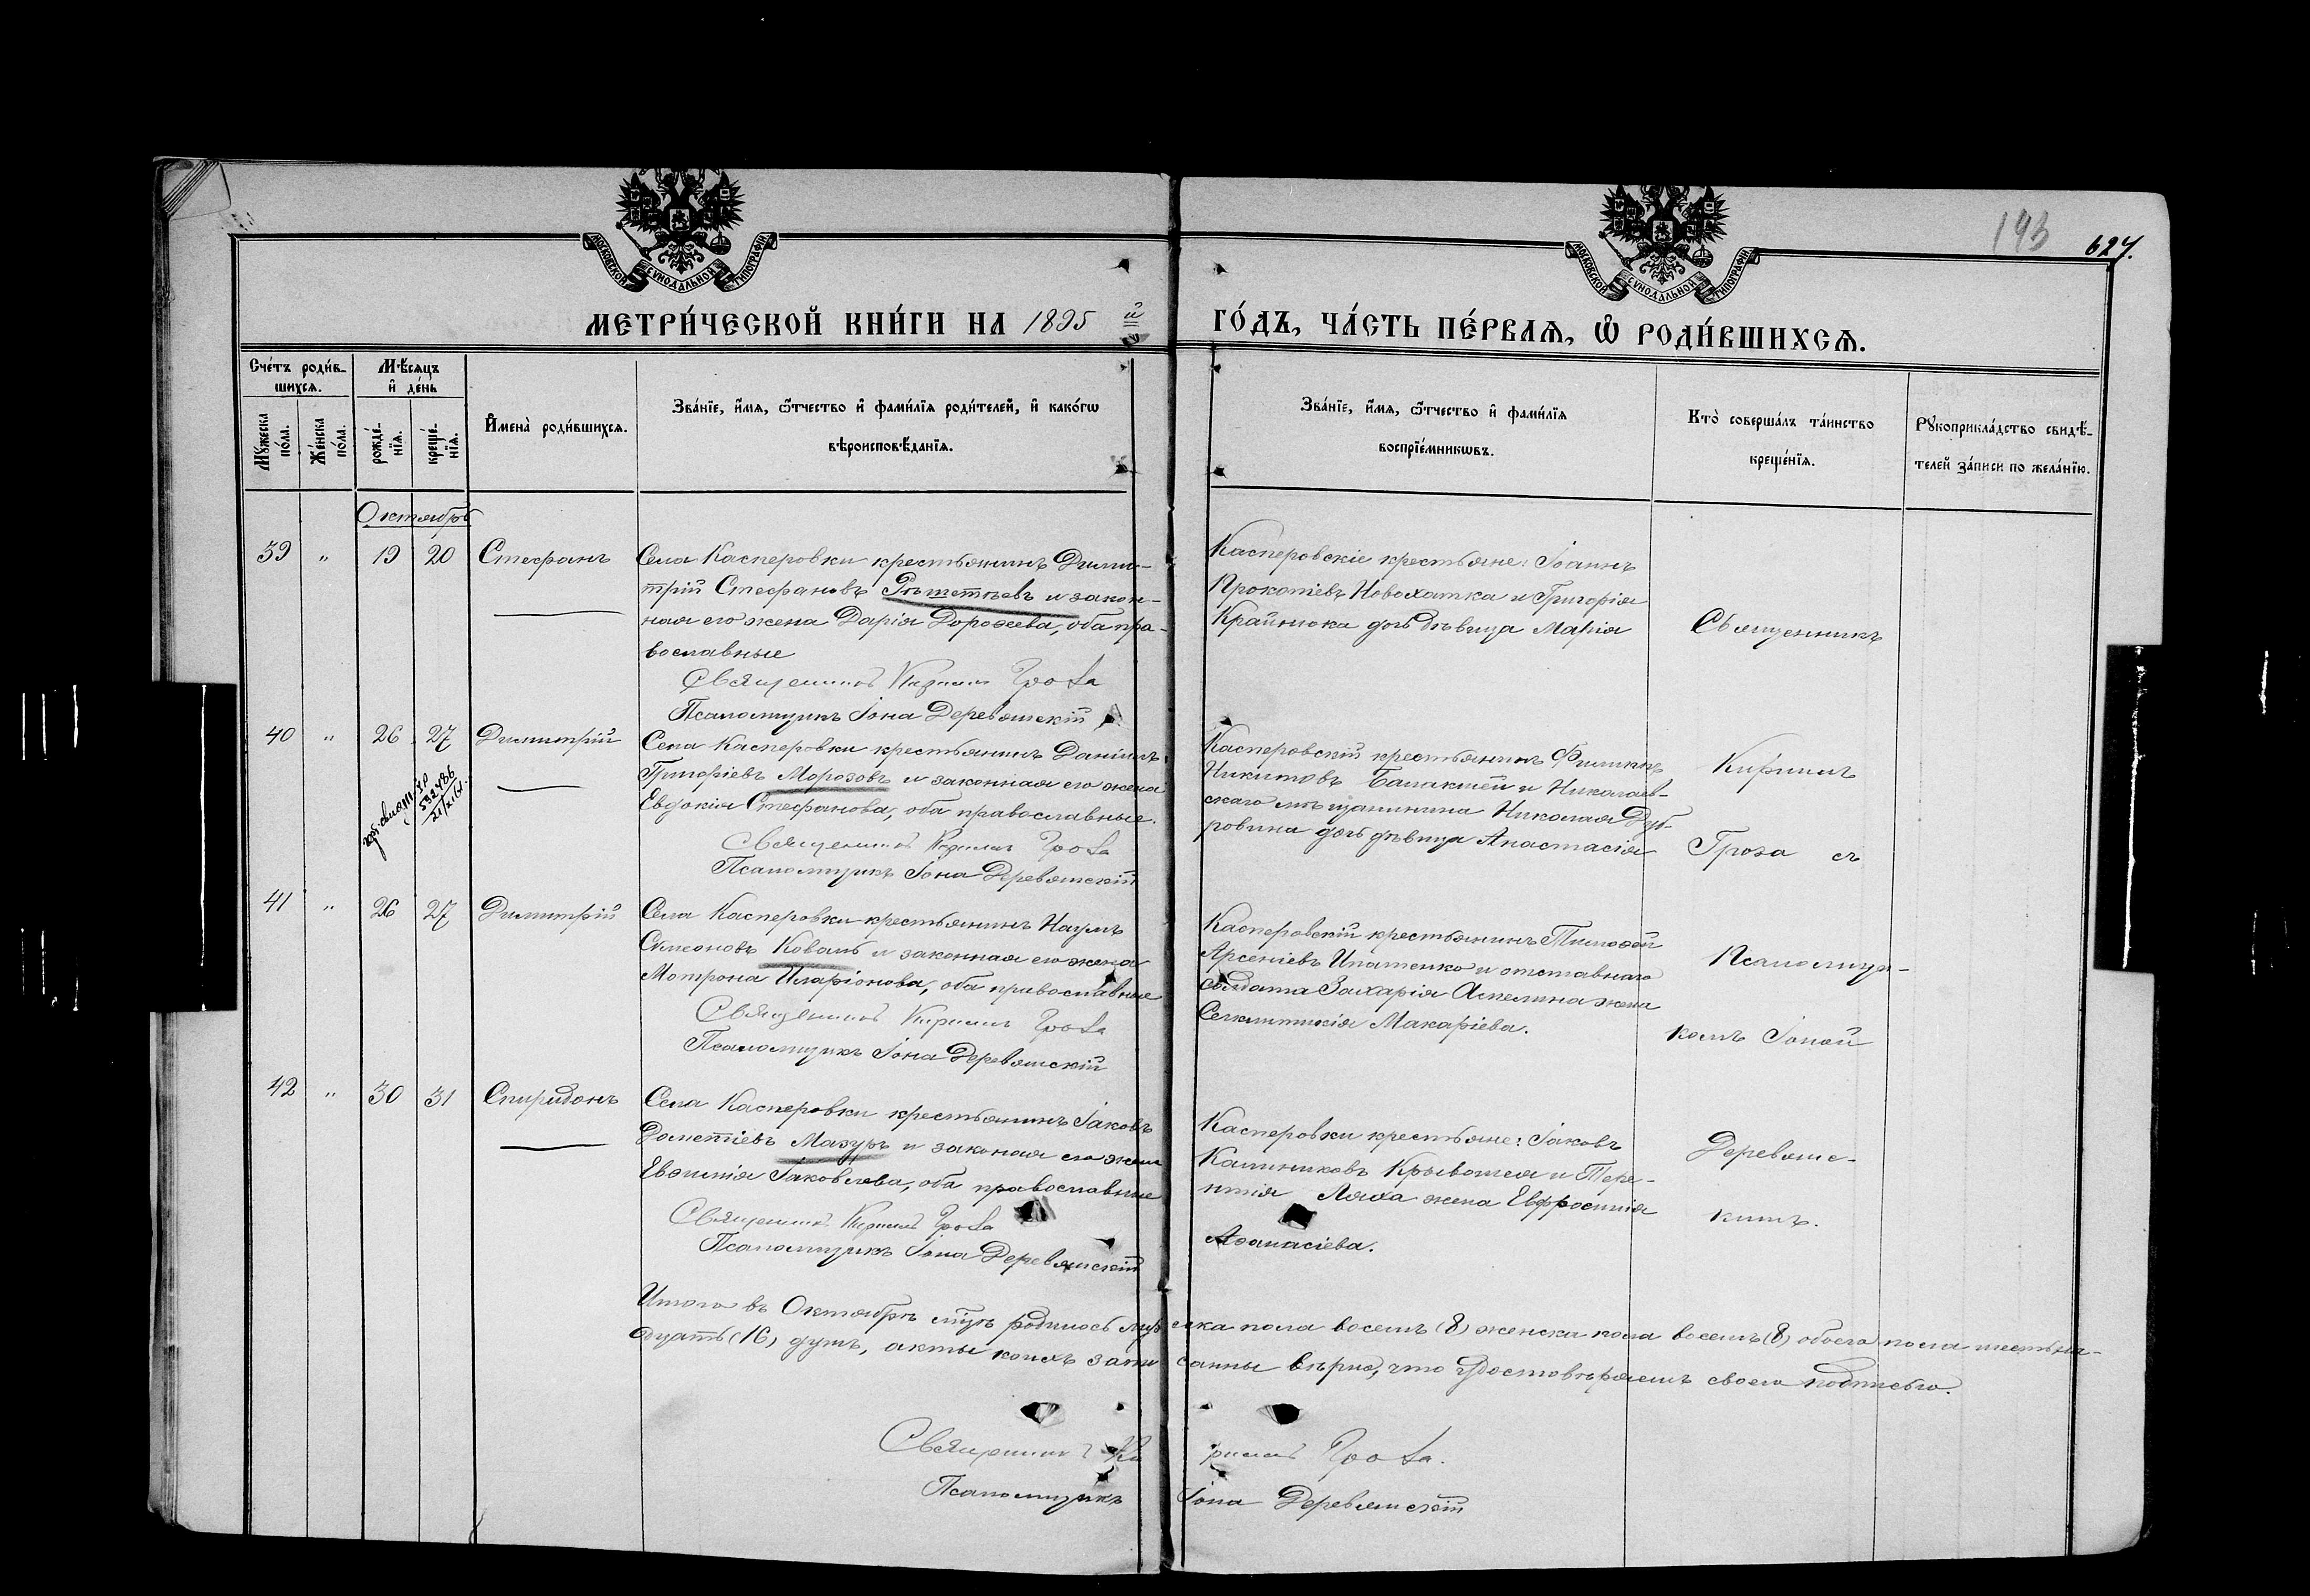 МОСКОВСКОЙ СѴНОДАЛЬНОЙ ТИПОГРАФІИ
МОСКОВСКОЙ СѴНОДАЛЬНОЙ ТИПОГРАФІИ
193 627.
МЕТРИ́ЧЕСКОЙ КНИ́ГИ НА 1895 й
ГО́ДЪ, ЧА́СТЬ ПЕ́РВАѦ, Ѿ РОДИ́ВШИХСѦ.
Сче́тъ роди́в-
шихсѧ.
Мѣ́сѧцъ
и҆ де́нь
Мꙋ́жеска по́ла.
Же́нска по́ла.
рожде́-нїѧ.
креще́-нїѧ.
И҆мена̀ роди́вшихсѧ.
Зва́нїе, и҆́мѧ, ѻ҆́тчество и҆ фами́лїѧ роди́телей, и҆ како́гѡ
вѣроисповѣ́данїѧ.
Зва́нїе, и҆́мѧ, ѻ҆́тчество и҆ фами́лїѧ
воспрїе́мникѡвъ.
Кто̀ соверша́лъ та́инство
креще́нїѧ.
Рꙋкоприкла́дство свидѣ́-
телей за́писи по жела́нїю.
Октябрь
39 " 19 20 Стефанъ
Села Касперовки крестьянинъ Дими-
трій Стефановъ Рѣшетнѣвъ и закон-
ная его жена Дарія Дорофеева, оба пра-
вославные
Священникъ Кириллъ Гроза
Псаломщикъ Іона Деревянскій
Касперовскіе крестьяне: Іоаннъ
Прокопіевъ Новохатка и Григорія
Крайнюка дочь дѣвица Марія
Священникъ
40 " 26 27 Димитрій
532486
Села Касперовки крестьянинъ Даніилъ
Григоріевъ Морозовъ и законная его жена
Евдокія Стефанова, оба православные.
Священникъ Кириллъ Гроза
Псаломщикъ Іона Деревянскій
Касперовскій крестьянинъ Филиппъ
Никитовъ Балакшей и Николаев-
скаго мѣщанина Николая Дуб-
ровина дочь дѣвица Анастасія
Кирилъ
Гроза съ
41 " 26 27 Димитрій
Села Касперовки крестьянинъ Наумъ
Симеоновъ Коваль и законная его жена
Мотрона Иларіонова, оба православные
Священникъ Кириллъ Гроза
Псаломщикъ Іона Деревянскій
Касперовскій крестьянинъ Тимофей
Арсеніевъ Ипатенко и отставнаго
солдата Захарія жена
Макаріева.
Псаломщи-
комъ Іоной
42 " 30 31 Спиридонъ
Села Касперовки крестьянинъ Іаковъ
Дометіевъ Мазуръ и законая его жена
Евфимія Іаковлева, оба православные
Священникъ Кириллъ Гроза
Псаломщикъ Іона Деревянскій
Касперовки крестьяне: Іаковъ
Калиниковъ Крывошея и Тере-
нтія Ляха жена Евфросинія
Афанасіева.
Деревянс-
кимъ.
Итого въ Октябрѣ мцѣ родилось мужеска пола восемь (8) женска пола восемь (8) обоего пола шестьна-
дцать (16) душъ, акты коихъ записанны вѣрно, что удостовѣряемъ своею подписью.
Священникъ Кириллъ Гроза.
Псаломщикъ Іона Деревянскій